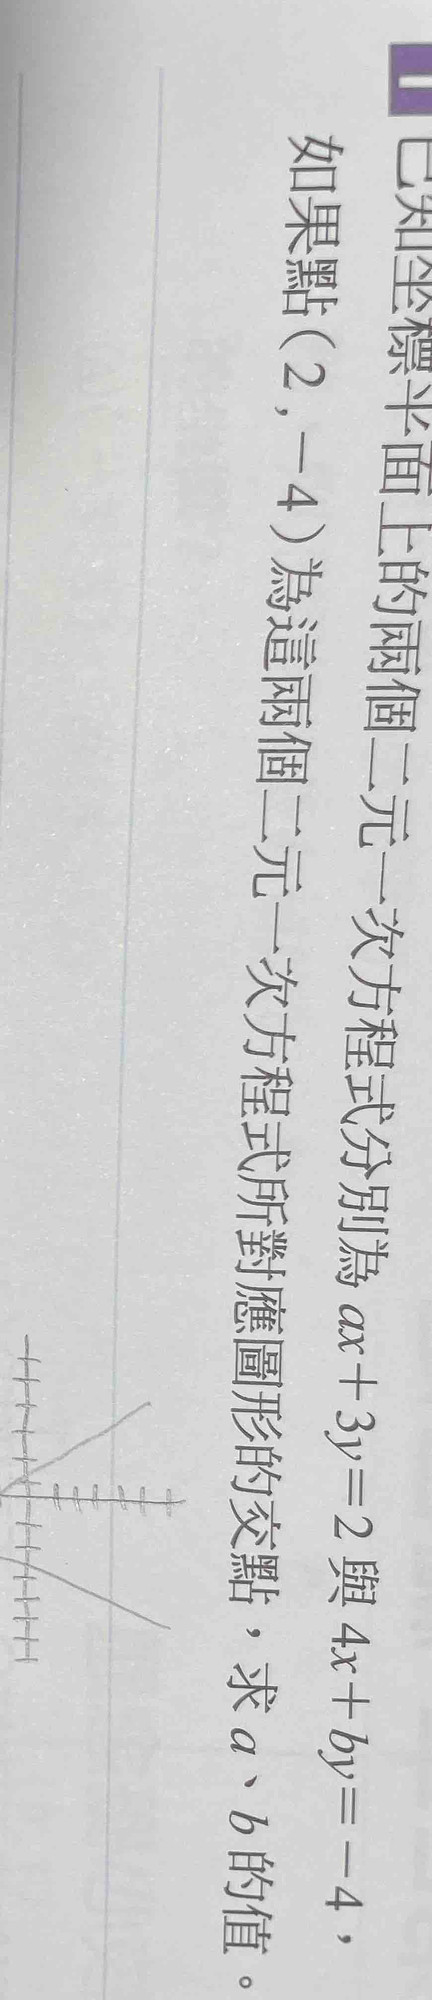 1
已知坐標平面上的兩個二元一次方程式分別為 ax＋3y＝2 與 4x＋by＝－4，
如果點（2，－4）為這兩個二元一次方程式所對應圖形的交點，求 a、b 的值。